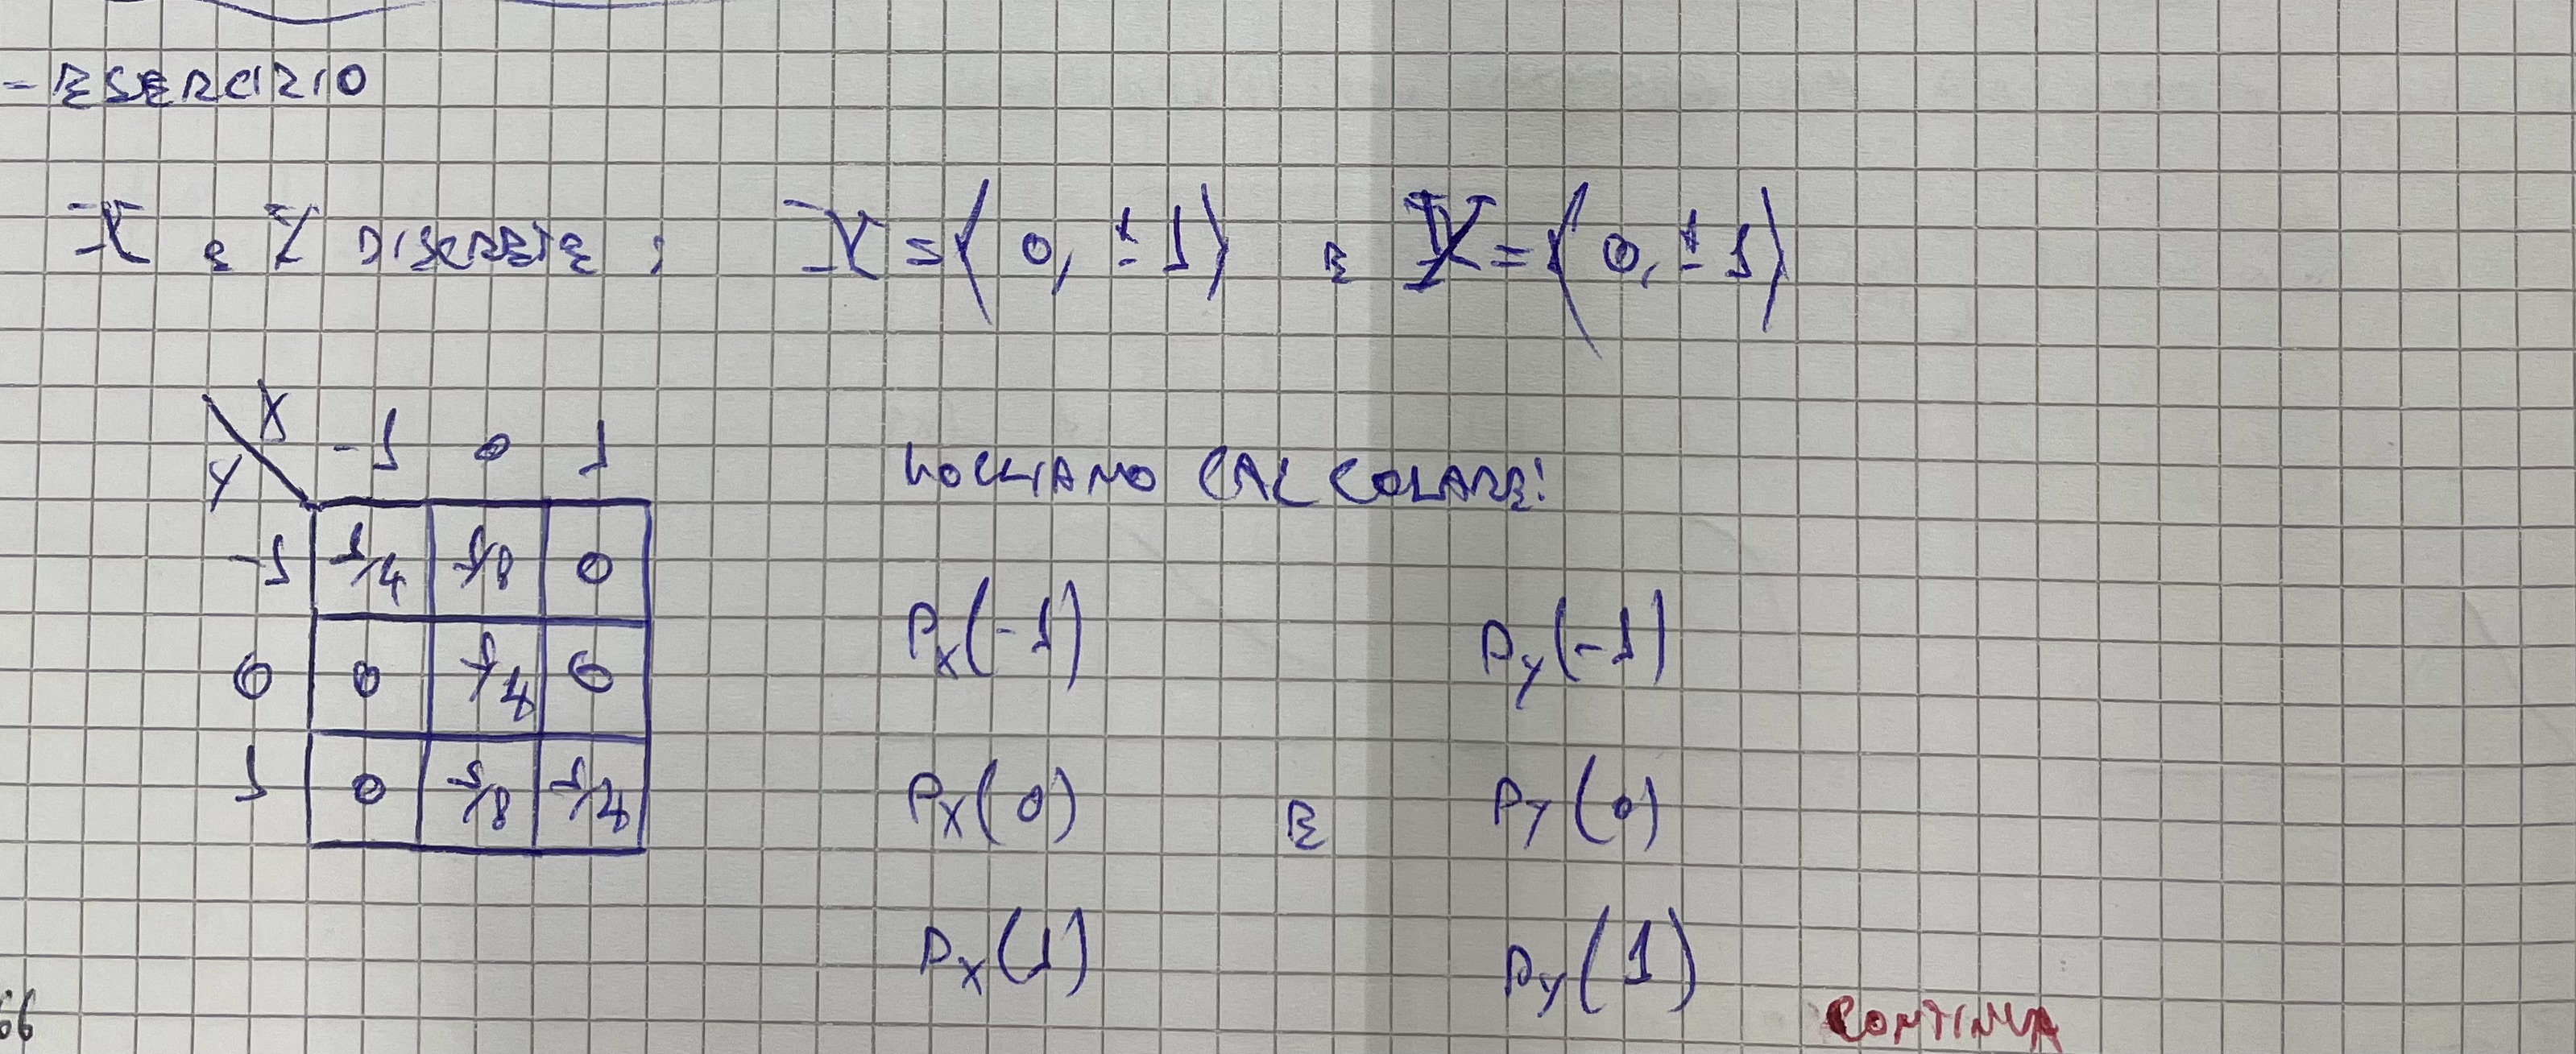 - ESERCIZIO
X e Y DISCRETE ; X = { 0, ± 1 } E Y = { 0, ± 1 }
X
Y -1 0 1
-1 1/4 1/8 0
0 0 1/4 0
1 0 1/8 1/4
VOGLIAMO CALCOLARE:
Px(-1) Py(-1)
Px(0) E Py(0)
Px(1) Py(1)
66 CONTINUA